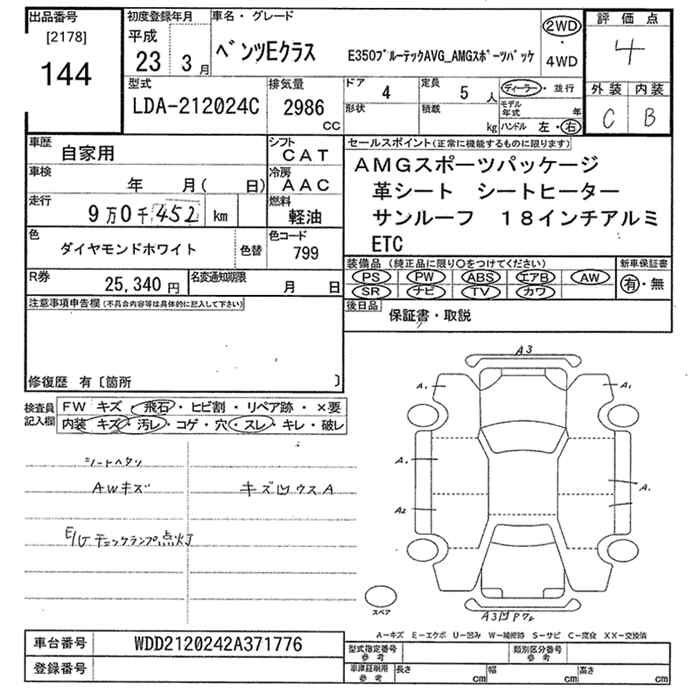 出品番号
[2178]
144
初度登録年月
平成
23 3月
車名・グレード
ベンツEクラス E350ブルーテックAVG_AMGスポーツパッケ
2WD
・
4WD
評価点
4
外装 内装
C B
型式
LDA-212024C
排気量
2986
CC
ドア 4
定員 5 人
形状
積載 kg
ディーラー・並行
モデル年式 年
ハンドル 左・右
車歴 自家用
シフト
CAT
車検 年 月( 日)
冷房
AAC
走行 9万0千452 km
燃料
軽油
色 ダイヤモンドホワイト 色替
色コード
799
R券 25,340円
名変通知期限 月 日
セールスポイント(正常に機能するものに限ります)
AMGスポーツパッケージ
革シート シートヒーター
サンルーフ 18インチアルミ
ETC
装備品(純正品に限り○をつけてください)
PS PW ABS エアB AW
SR ナビ TV カワ
新車保証書
有・無
後日品 保証書・取説
注意事項申告欄(不具合内容等は具体的に記入して下さい)
修復歴 有〔箇所 〕
検査員記入欄
FW キズ・飛石・ヒビ割・リペア跡・×要
内装 キズ・汚レ・コゲ・穴・スレ・キレ・破レ
シートヘタリ
AWキズ キズ凹ウスA
E/Gチェックランプ点灯
A3
A1 A1
A1 A1
A2
スペア
A3凹P72
A-キズ E-エクボ U-凹み W-補修跡 S-サビ C-腐食 XX-交換済
車台番号 WDD2120242A371776
登録番号
型式指定番号 参考
類別区分番号 参考
車庫証明用 参考
長さ cm 幅 cm 高さ cm